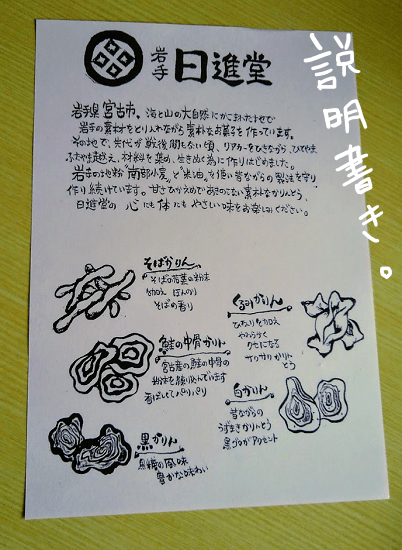 岩手 日進堂
説明書き。
岩手県宮古市。海と山の大自然にかこまれた地で
岩手の素材をとり入れながら素朴なお菓子を作っています。
その地で、先代が戦後間もない頃、リアカーをひきながら、ひとやま
ふたやま越え、材料を集め、生きぬく為に作りはじめました。
岩手の地粉"南部小麦"と"米油"を使い昔ながらの製法を守り
作り続けています。甘さひかえめであきのこない素朴なかりんとう、
日進堂の 心にも体にも やさしい味をお楽しみください。
そばかりん
そばの若葉の粉末
ほんのり
そばの香り
くるみかりん
やわらかく
クセになる
かりん
とう
鮭の中骨かりん
宮古産の鮭の中骨の
粉末を練り込んでいます
香ばしくてパリパリ
白かりん
昔ながらの
うずまきかりんとう
黒ゴマがアクセント
黒かりん
黒糖の風味
豊かな味わい